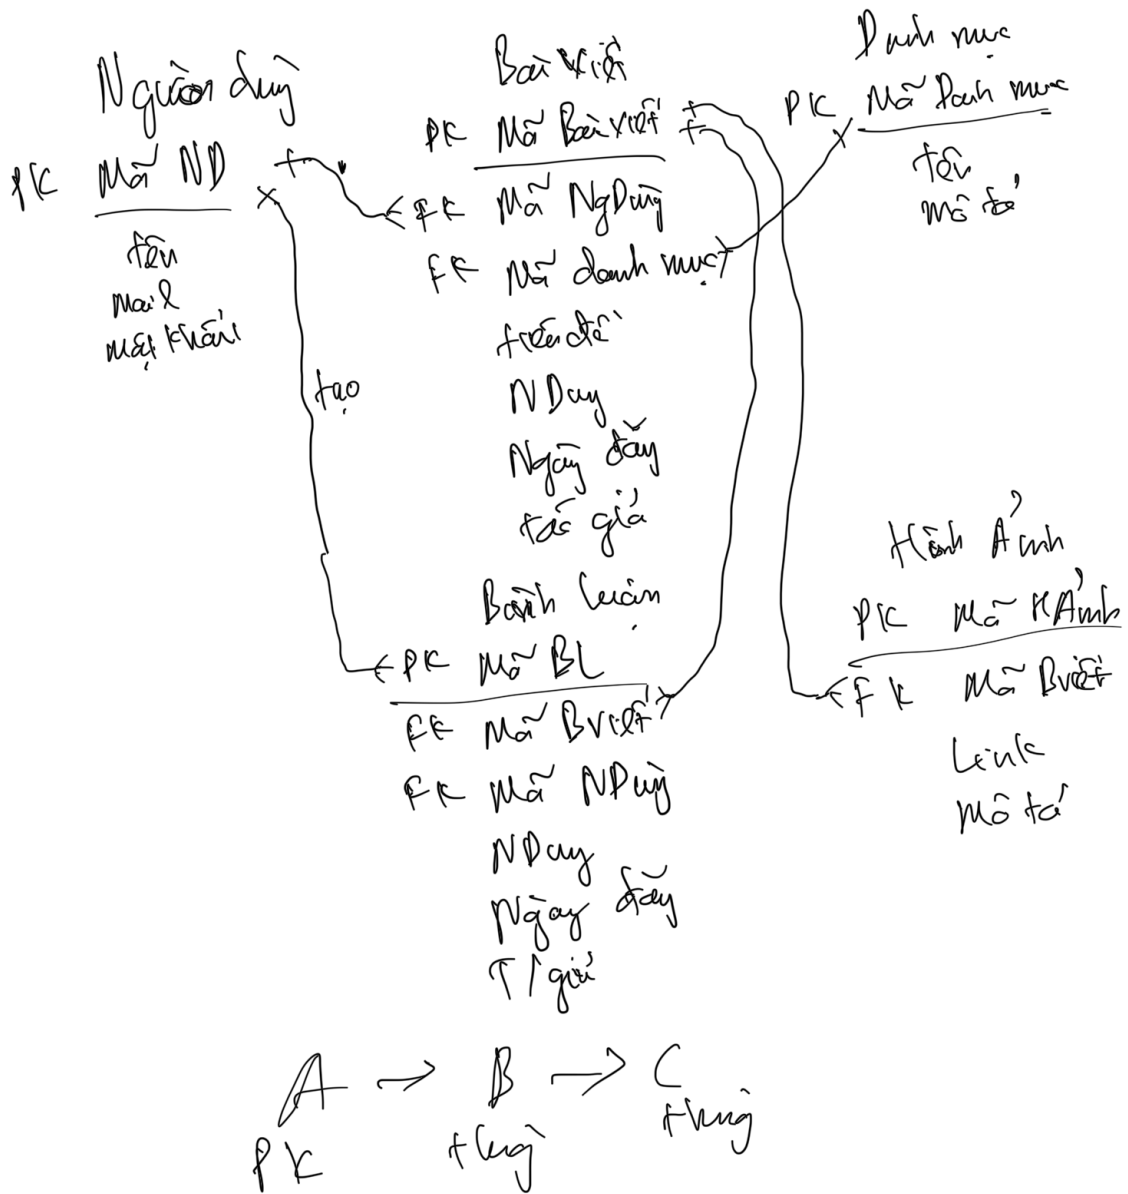 Người dùng
PK Mã ND
tên
mail
mật khẩu
tạo
Bài viết
PK Mã Bài viết
FK Mã NgDùng
FK Mã danh mục
tiêu đề
NDug
Ngày đăg
tác giả
Danh mục
PK Mã Danh mục
tên
mô tả
Bình luận
PK Mã BL
FK Mã Bviết
FK Mã NDùg
NDug
Ngày đăg
T/giả
Hình Ảnh
PK Mã HẢnh
FK Mã Bviết
Link
Mô tả
A → B → C
PK